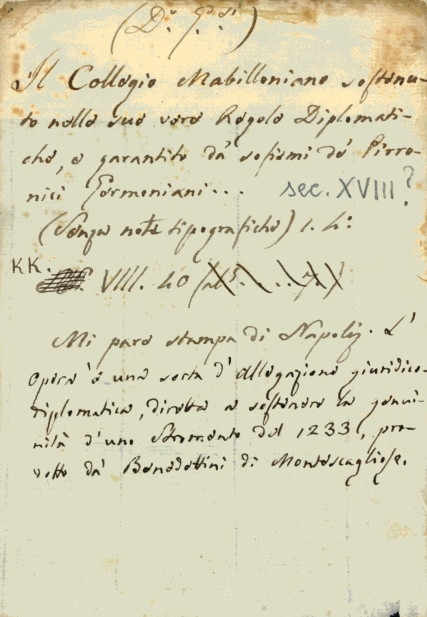 Il Collegio Mabilloniano sostenu-
to nelle sue vere Regole Diplomati-
che, e garantito da' sofismi de' Pirro-
nici Germoniani...
sec. XVIII?
(Senza note tipografiche) 4º:
KK.
VIII. 40
Mi pare stampa di Napoli. L'
Opera è una sorta d'allegazione giuridico-
diplomatica, diretta a sostenere la genui-
nità d'uno Stromento del 1233, pro-
dotto da' Benedettini di Montescaglioso.